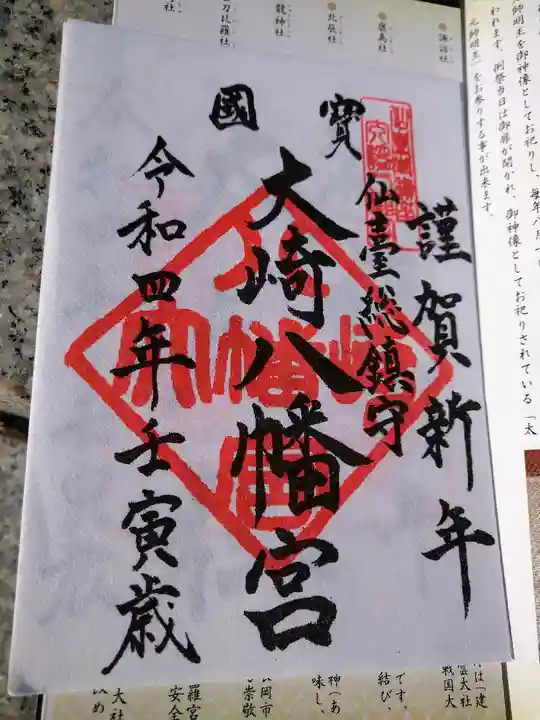 謹賀新年
仙臺総鎮守
國寳
大崎八幡宮
令和四年壬寅歳
諏訪社
鹿島社
北辰社
龍神社
刀比羅社
元師明王を御神像としてお祀りし、毎年八月
われます。例祭当日は御扉が開かれ、御神像としてお祀りされている「太
元師明王」をお参りする事が出来ます。
は「建
雲大社
戦国大
です。
結び、
神（あ
味し、
岡市
崇敬
羅宮
安全
大社